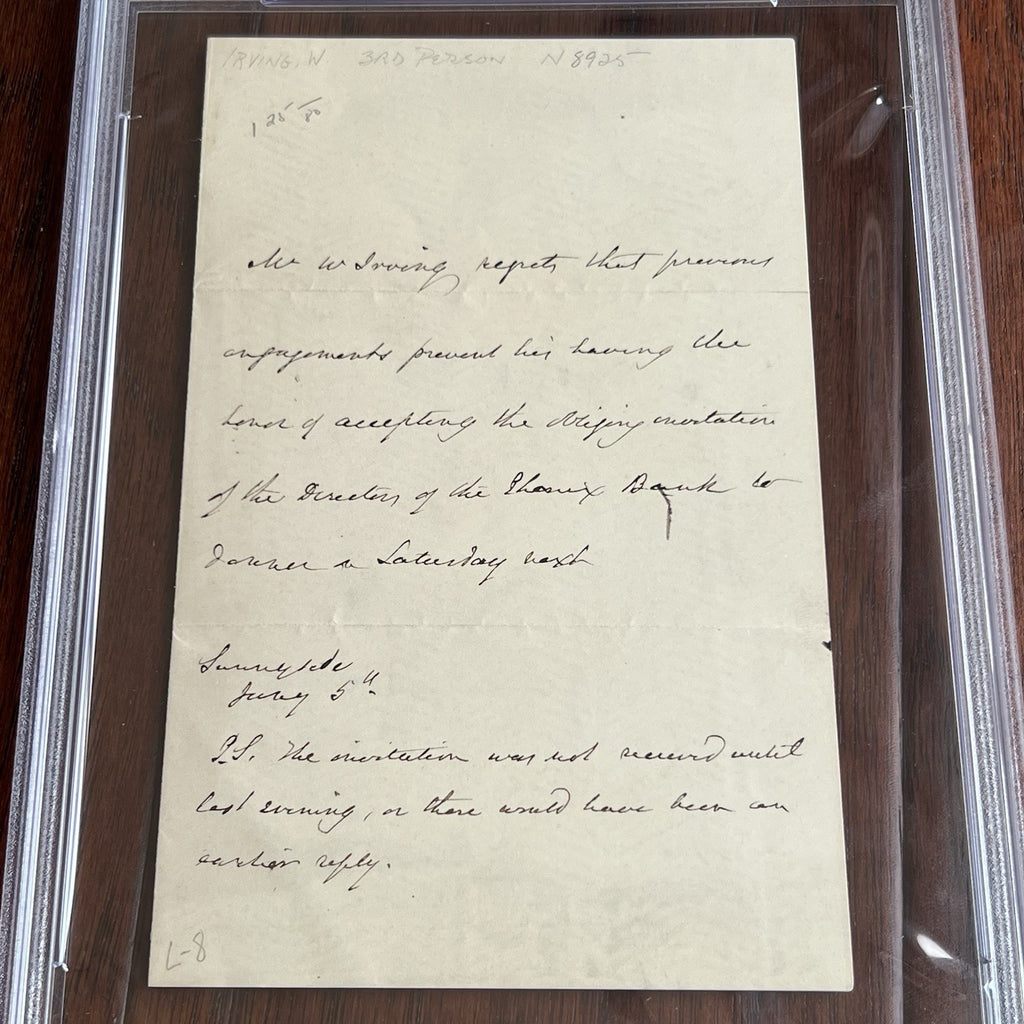 IRVING, W 3RD PERSON N 8925
Mr W Irving regrets that previous
engagements prevent his having the
honor of accepting the obliging invitation
of the Directors of the Phoenix Bank to
dinner on Saturday next
Sunnyside
5th
P.S. The invitation was not received until
last evening, or there would have been an
earlier reply.
L-8